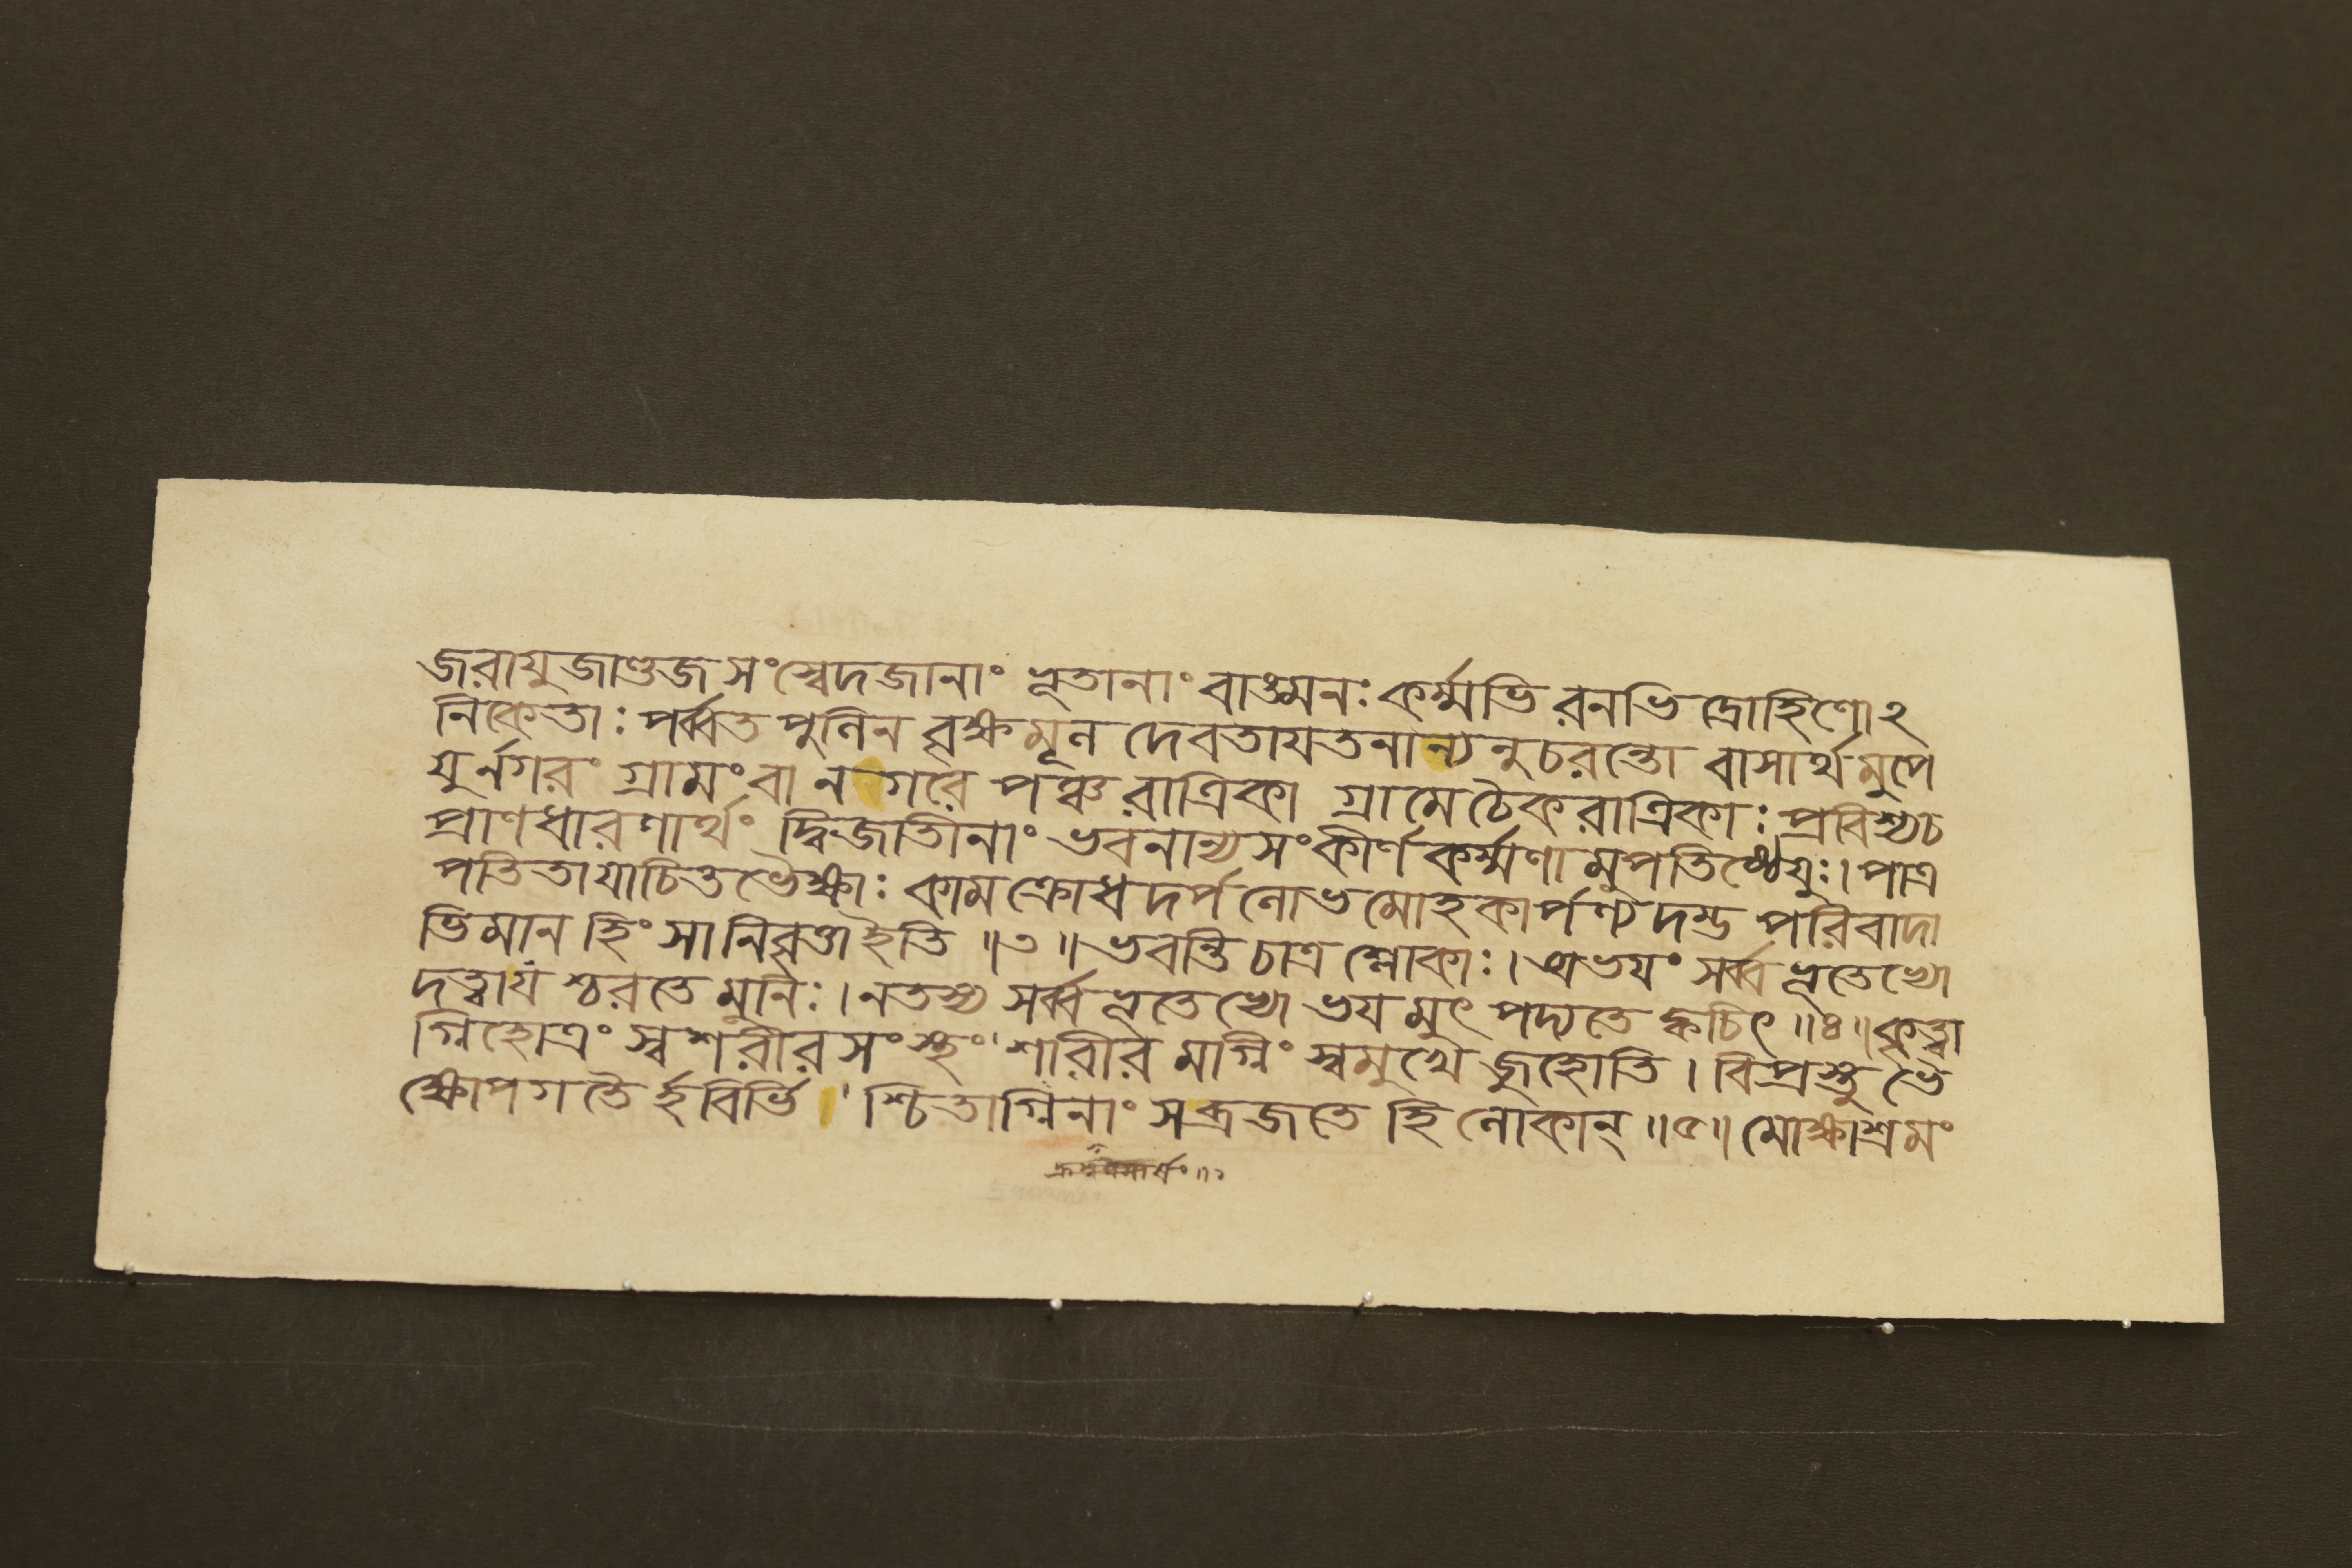 জরায়ুজাণ্ডজসংস্বেদজানাং ভূতানাং বাঙ্মনঃকর্ম্মভিরনভিদ্রোহিণোঽ
নিকেতাঃ পর্ব্বতপুলিনবৃক্ষমূলদেবতায়তনান্যনুচরন্তো বাসার্থমুপে
যুর্নগরং গ্রামং বা নগরে পঞ্চরাত্রিকা গ্রামে চৈকরাত্রিকাঃ প্রবিশ্য চ
প্রাণধারণার্থং দ্বিজাতীনাং ভবনান্যসংকীর্ণকর্ম্মণামুপতিষ্ঠেয়ুঃ। পাত্র
পতিতাযাচিতভৈক্ষাঃ কামক্রোধদর্পলোভমোহকার্পণ্যদম্ভপরিবাদা
ভিমানহিংসানিবৃত্তা ইতি ॥৩॥ ভবন্তি চাত্র শ্লোকাঃ। অভয়ং সর্ব্বভূতেভ্যো
দত্ত্বা যশ্চরতে মুনিঃ। ন তস্য সর্ব্বভূতেভ্যো ভয়মুৎপদ্যতে ক্বচিৎ ॥৪॥ কৃত্বা
গ্নিহোত্রং স্বশরীরসংস্থং শারীরমগ্নিং স্বমুখে জুহোতি। বিপ্রস্তু ভৈ
ক্ষোপগতৈর্হবির্ভি শ্চিতাগ্নিনাং স ব্রজতে হি লোকান্ ॥৫॥ মোক্ষাশ্রমং